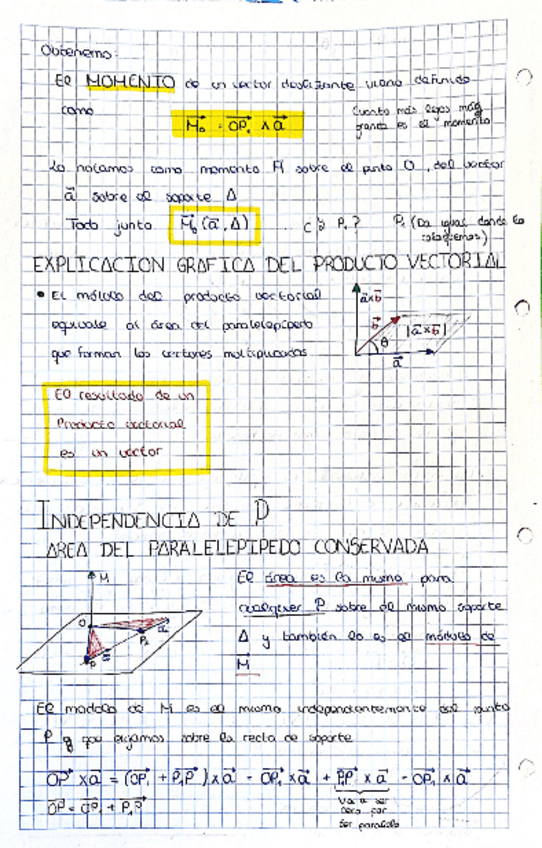 Obtenemos:
El MOMENTO de un vector deslizante viene definido
como
M₀ = OP₁ ∧ a
Cuanto más lejos más
grande es el momento
Lo notamos como momento M sobre el punto O, del vector
a sobre el soporte Δ
Todo junto M₀ (a, Δ) ... ¿ y P₁ ? P₁ (Da igual donde lo
coloquemos)
EXPLICACION GRAFICA DEL PRODUCTO VECTORIAL
• El módulo del producto vectorial
equivale al área del paralelepípedo
que forman los vectores multiplicados
a x b
b
|a x b|
θ
a
El resultado de un
Producto vectorial
es un vector
INDEPENDENCIA DE P
AREA DEL PARALELEPIPEDO CONSERVADA
M
O
P₁
a
P
El área es la misma para
cualquier P sobre el mismo soporte
Δ y también lo es el módulo de
M
El modulo de M es el mismo independientemente del punto
P q que elijamos sobre la recta de soporte
OP x a = (OP₁ + P₁P) x a = OP₁ x a + P₁P x a = OP₁ x a
OP = OP₁ + P₁P
va a ser
cero por
ser paralelo